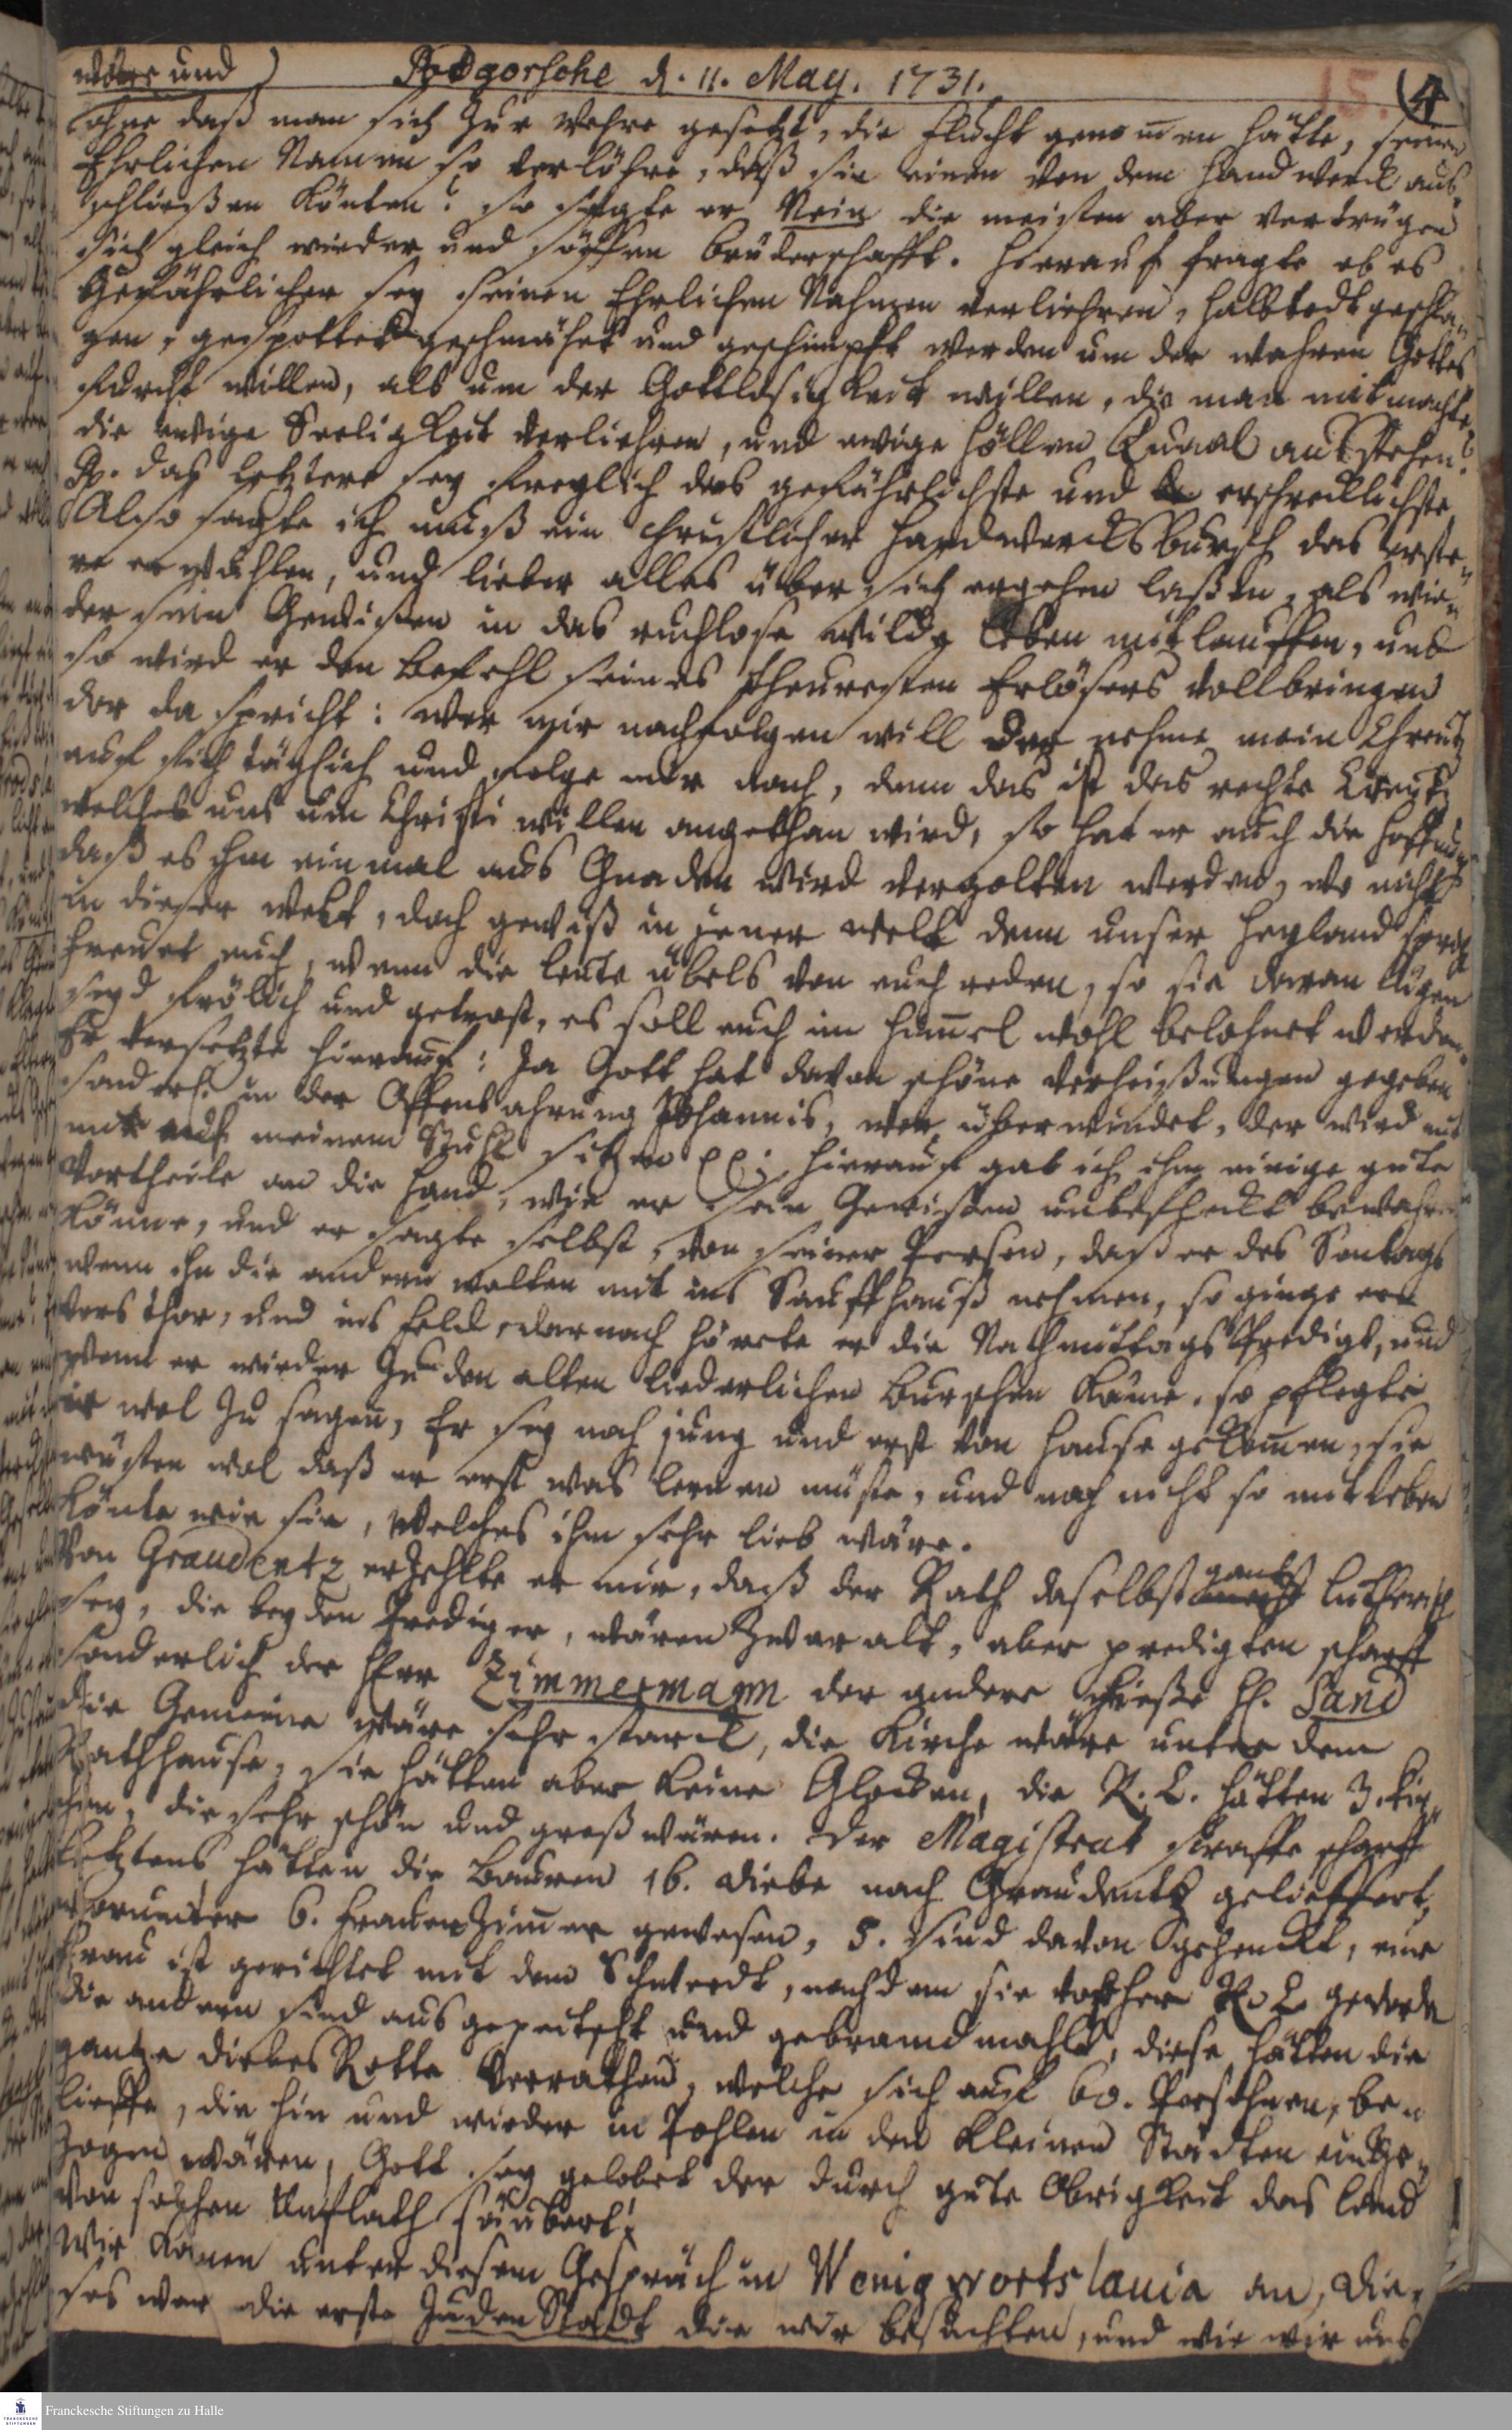 wäre und) Podgorsche d. 11. May. 1731. 15. (4
ohne daß man sich zur wehre gesetzt, die flucht genom̅en hätte, seinen
Ehrlichen Namen so verlöhre, daß sie einen von dem Handwerck aus„
schließen könten? So sagte er Nein die meisten aber vertrügen
sich gleich wieder und söffen brüderschafft. Hierauf fragte ob es
Gefährlicher sey seinen Ehrlichen Nahmen verliehren, halbtodt geschla„
gen, gespottet geschmähet und geschimpft werden um der wahren Gottes
furcht willen, als um der Gottlosigkeit willen, die man mitmachte,
die ewige Seeligkeit verliehren, und ewige Höllen Quaal ausstehen?
Rx. das letztere sey freylich das gefährlichste und erschrecklichste,
Also sagte ich muß ein christlicher Handwercksbursch das erste„
re erwählen, und lieber alles über sich ergehen laßen, als wie„
der sein Gewißen in das ruchlose wilde Leben mitlauffen, und
so wird er den Befehl seines theuresten Erlösers vollbringen
der da spricht: wer mir nachfolgen will der nehme mein Chreutz
auf sich täglich und folge mir nach, denn das ist das rechte Creutz
welches uns um Christi willen angethan wird, so hat er auch die Hoffnung
daß es ihm einmal aus Gnaden wird vergolten werden, wo nicht
in dieser Welt, doch gewiß in jener Welt denn unser Heyland spricht
freuet euch, wenn die leute übels von euch reden, so sie daran lügen
seyd frölich und getrost, es soll euch im Him̅el wohl belohnet werden.
Er versetzte hierauf: Ja Gott hat davon schöne verheißungen gegeben
sonderl. in der Offenbahrung Johannis, wer überwindet, der wird mit
mir auf meinem Stuhl sitzen pp; hierauf gab ich ihm einige gute
Vortheile an die Hand, wie er sein Gewißen unbefleckt bewahren
könne, und er sagte selbst, von seiner Person, daß er des Sontags
wenn ihn die andern wolten mit ins Sauffhauß nehmen, so ginge er
vors thor, und ins feld, darnach hörete er die Nachmittags Predigt, und
wenn er wieder zu den alten liederlichen Burschen käme, so pflegte
er wol zu sagen, Er sey noch jung und erst von Hause gekom̅en, sie
wüsten wol daß er erst was lernen müste, und noch nicht so mitleben
könte wie sie, welches ihm sehr lieb wäre.
Von Graudentz erzehlte er mir, daß der Rath daselbst gantz lutherisch
sey, die beyden Prediger, wären zwar alt, aber predigten scharff
sonderlich der Herr Zimmermann der andere hieße H. Sand
Die Gemeine wäre sehr starck, die Kirche wäre unter dem
Rathhause, sie hätten aber keine Glocken, die R. C. hätten 3. Kir„
chen, die sehr schön und groß wären. Der Magistrat straffe scharff
letztens hätten die Bauren 16. Diebe nach Graudentz gelieffert,
worunter 6. Frauenzim̅er gewesen, 5. sind davon gehenckt, eine
Frau ist gerichtet mit dem Schwerdt, nachdem sie vorher R. C. geworden
die andern sind ausgepeitscht und gebrandmahlt, diese hätten die
gantze diebes Rotte verrathen, welche sich auf 60. Persohnen, be„
lieffe, die hin und wieder in Pohlen in den kleinen Städten einge„
zogen wären, Gott sey gelobet der durch gute Obrigkeit das land
von solchen Unflath säubert!
Wir kamen unter diesem Gespräch in Wenigwortslavia an, die„
ses war die erste Juden Stadt die wir besuchten, und wie wir uns
Franckesche Stiftungen zu Halle